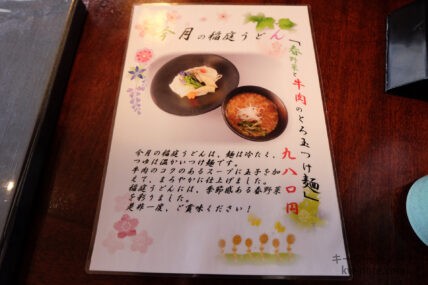 今月の稲庭うどん
「春野菜と牛肉のとろ玉つけ麺」
九八〇円
今月の稲庭うどんは、麺は冷たく、
つゆは温かいつけ麺です。
牛肉のコクのあるスープに玉子を加
えて、まろやかに仕上げました。
稲庭うどんには、季節感ある春野菜
を彩りました。
是非一度、ご賞味ください!